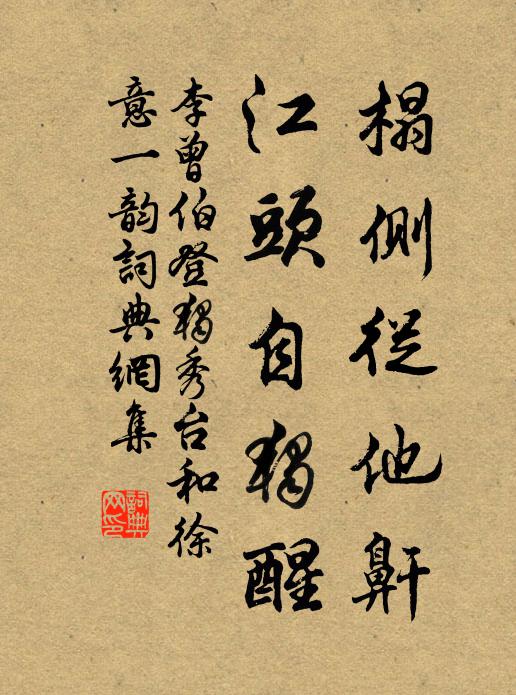 榻側從他鼾
江頭自獨醒
李曾伯登獨秀台和徐
意一韵詞典網集
詞典網印